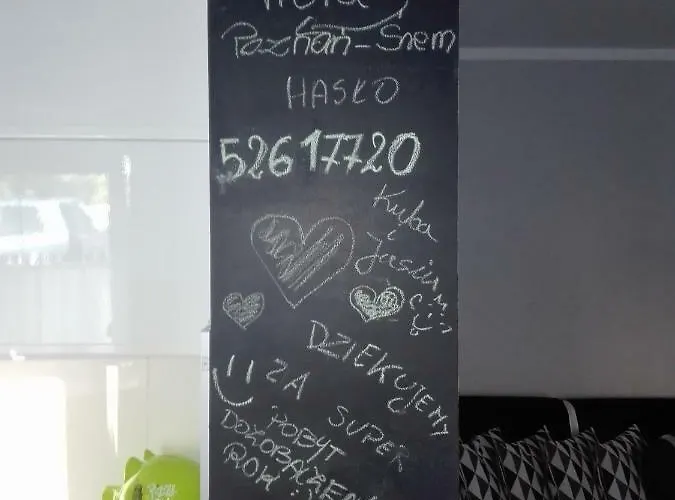 Poznań-Snem
HASŁO
52617720
Kuba
i
Jasiu
DZIEKUJEMY
ZA
SUPER
POBYT
DOZOBACZEN
ROK